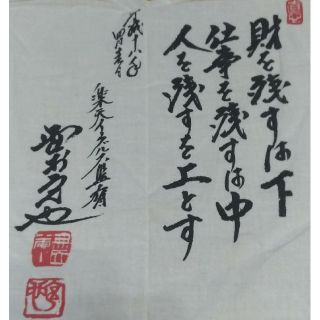 財を残すは下
仕事を残すは中
人を残すを上とす
平成十八年
楽天イーグルス監督
野村克也